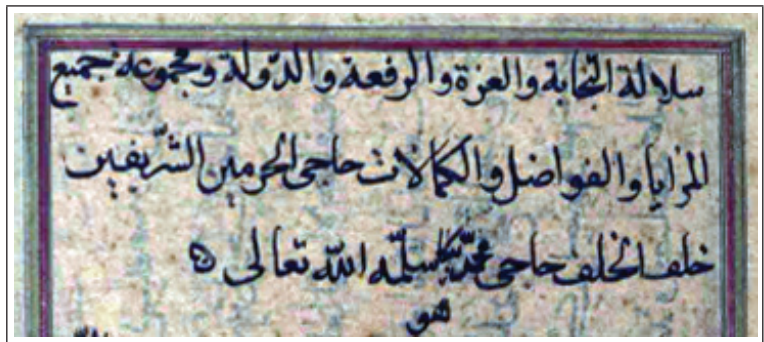 سلالة النجابة والعزة والرفعة والدّولة ومجموعة جميع
المزايا والفواضل والكمالات حاجی الحرمین الشّریفین
خلف الخلف حاجی محمّد بیکا سلّمه اللّه تعالی
هو